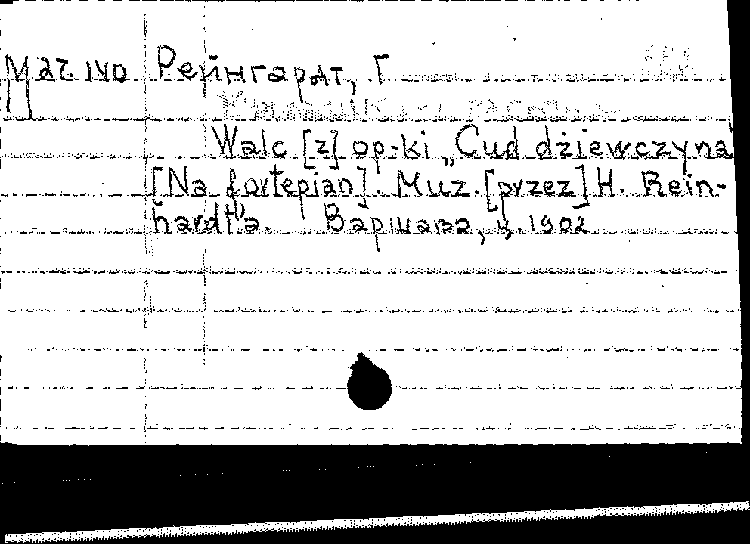 Рейнгардт, Г
Walc [z] op-ki „Cud dziewczyna"
[Na fortepian]. Muz. [przez] H. Rein-
hardt'a. Варшава, ц. 1902